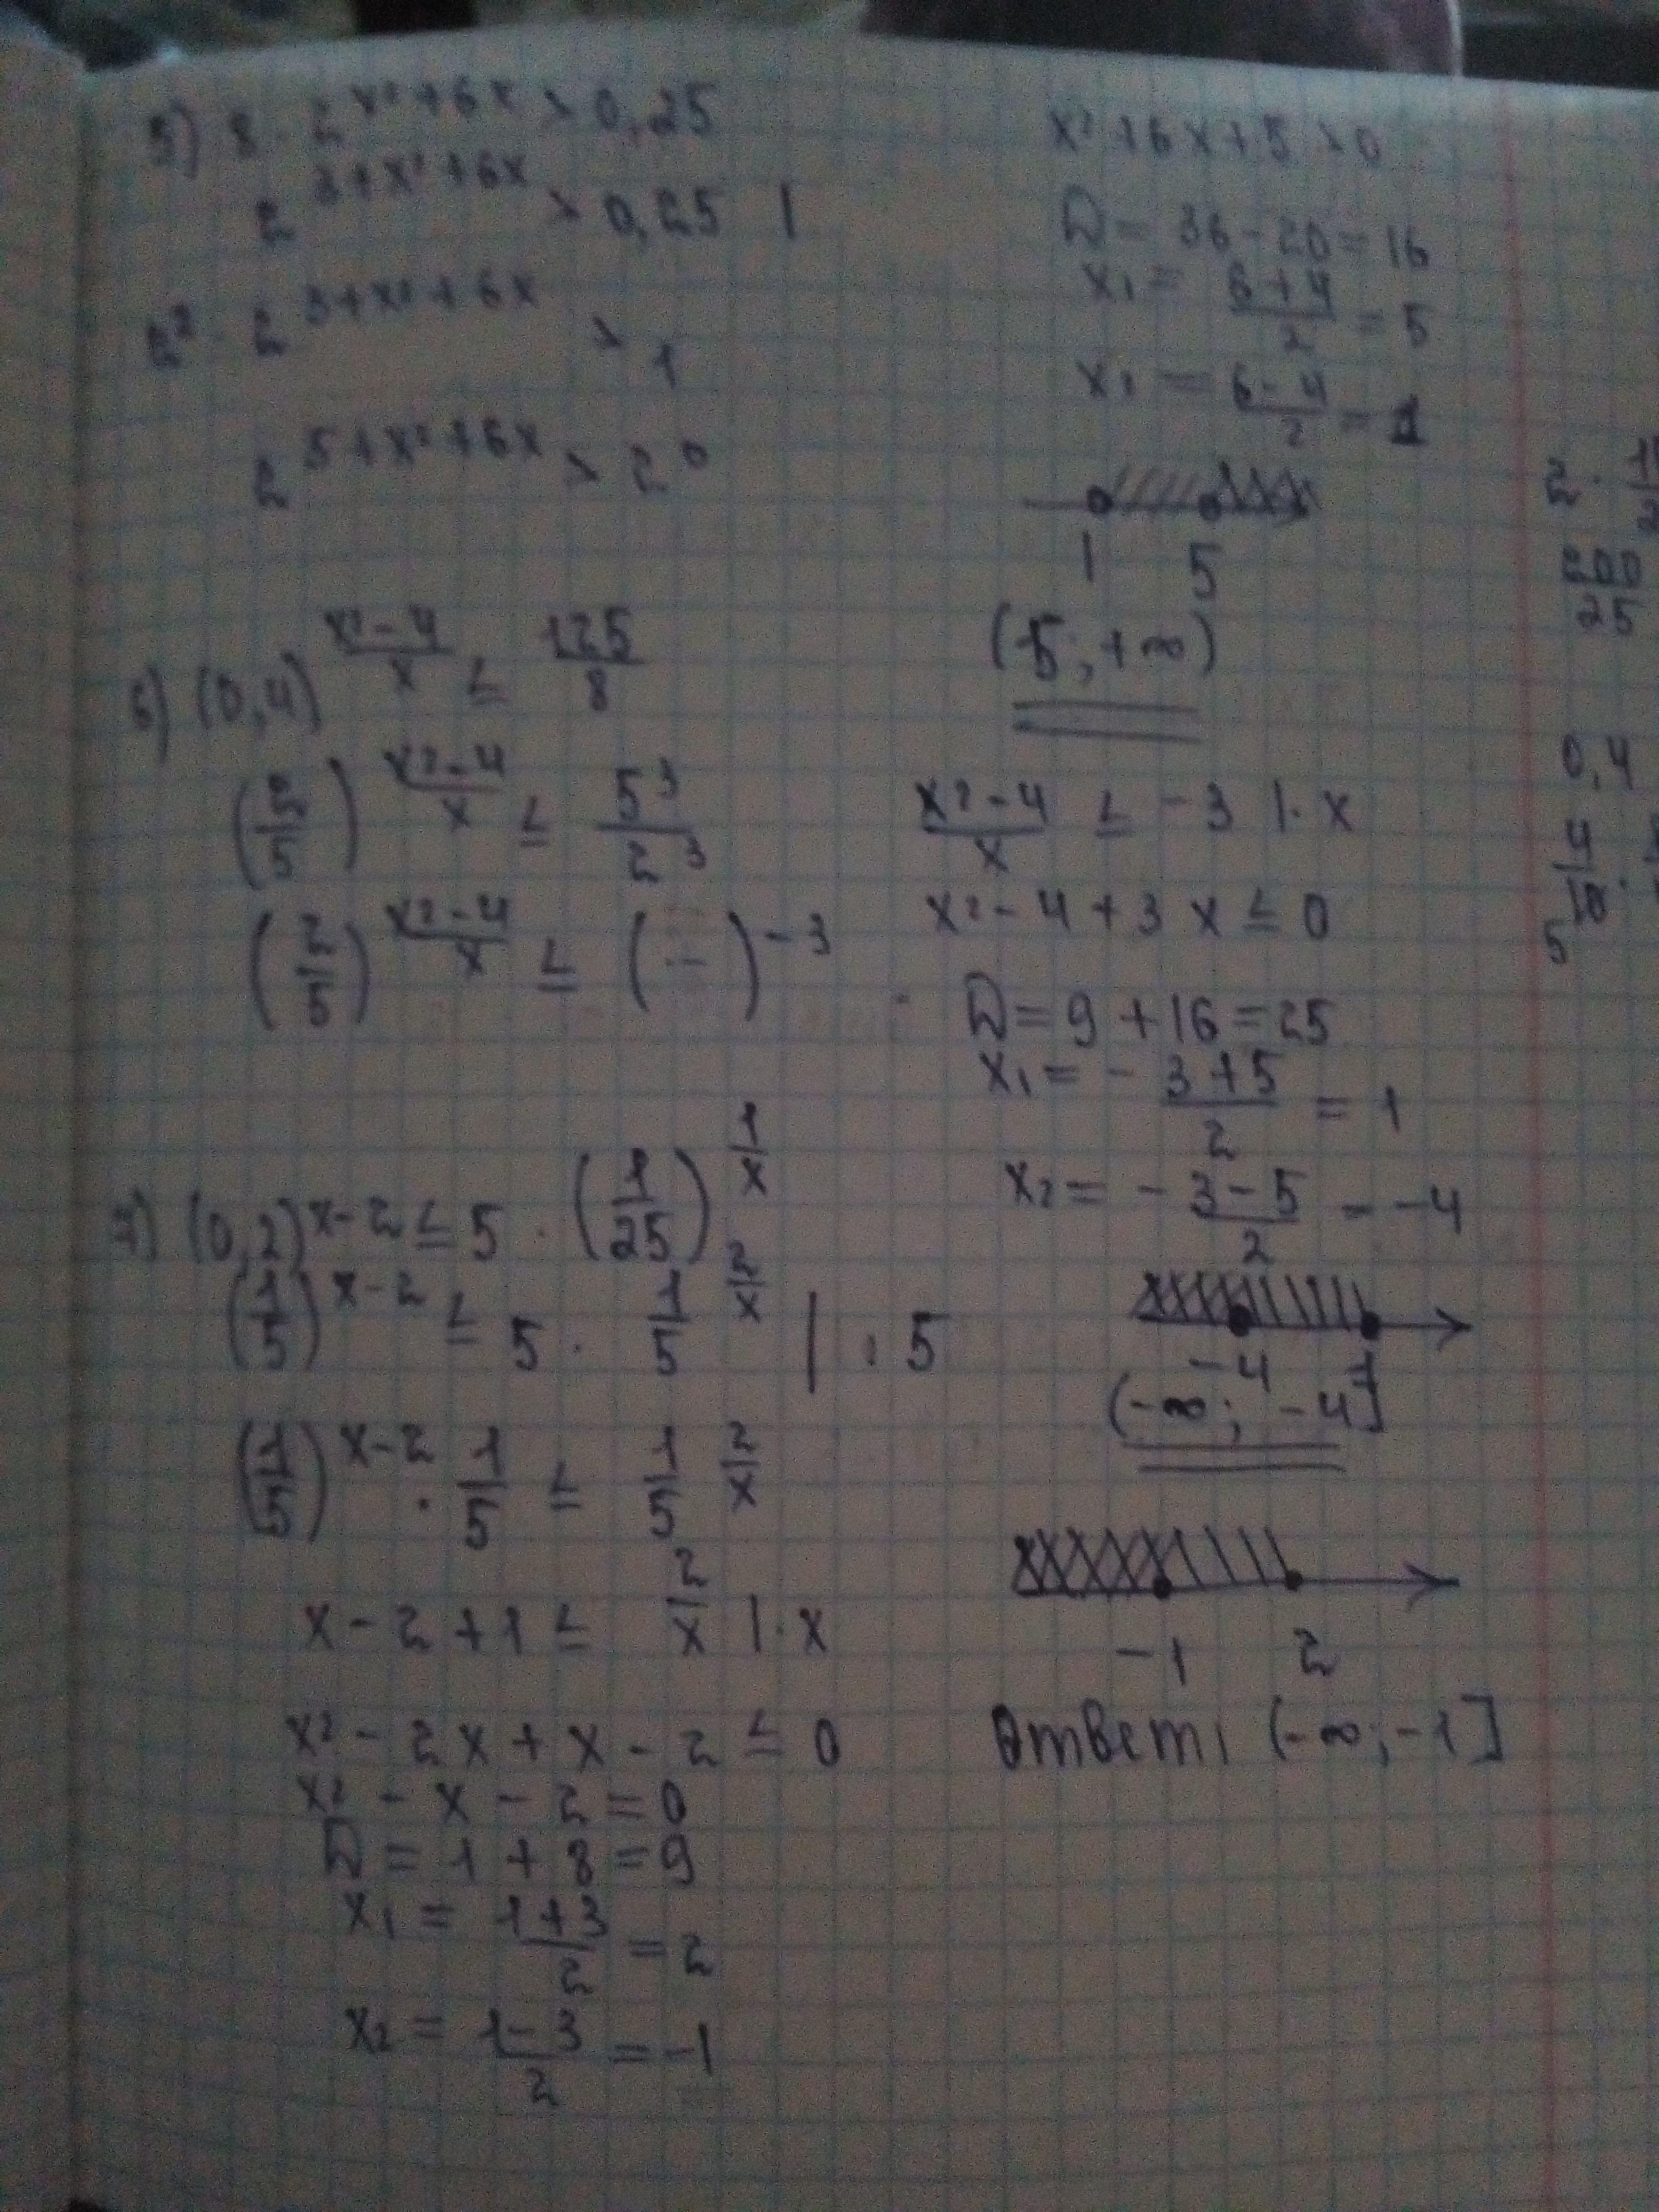 5) 8 · 2^(x²+6x) > 0,25
2^(3+x²+6x) > 0,25 |
2² · 2^(3+x²+6x) > 1
2^(5+x²+6x) > 2⁰
x²+6x+5 > 0
D = 36-20 = 16
x₁ = (6+4)/2 = 5
x₂ = (6-4)/2 = 1
1 5
(5; +∞)
6) (0,4)^((x²-4)/x) ≤ 125/8
(2/5)^((x²-4)/x) ≤ 5³/2³
(2/5)^((x²-4)/x) ≤ (–)^(-3)
(x²-4)/x ≤ -3 |· x
x²-4+3x ≤ 0
D = 9+16 = 25
x₁ = -(3+5)/2 = 1
x₂ = -(3-5)/2 = -4
-4 1
(-∞; -4]
7) (0,2)^(x-2) ≤ 5 · (1/25)^(1/x)
(1/5)^(x-2) ≤ 5 · 1/5^(2/x) | : 5
(1/5)^(x-2) · 1/5 ≤ 1/5^(2/x)
x-2+1 ≤ 2/x |· x
x²-2x+x-2 ≤ 0
x²-x-2 = 0
D = 1+8 = 9
x₁ = (1+3)/2 = 2
x₂ = (1-3)/2 = -1
-1 2
Ответ: (-∞; -1]
200/25
0,4
4/10
5